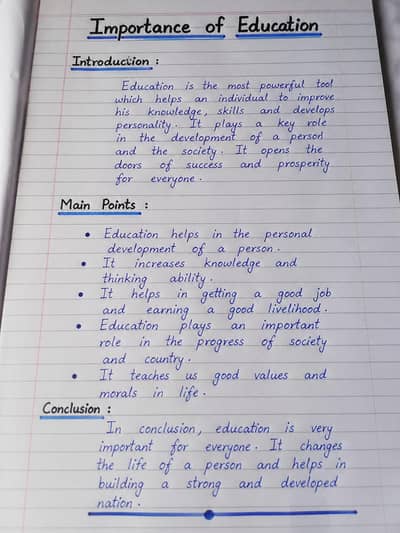 Importance of Education
Introduction :
Education is the most powerful tool
which helps an individual to improve
his knowledge, skills and develops
personality. It plays a key role
in the development of a person
and the society. It opens the
doors of success and prosperity
for everyone.
Main Points :
• Education helps in the personal
development of a person.
• It increases knowledge and
thinking ability.
• It helps in getting a good job
and earning a good livelihood.
• Education plays an important
role in the progress of society
and country.
• It teaches us good values and
morals in life.
Conclusion :
In conclusion, education is very
important for everyone. It changes
the life of a person and helps in
building a strong and developed
nation.